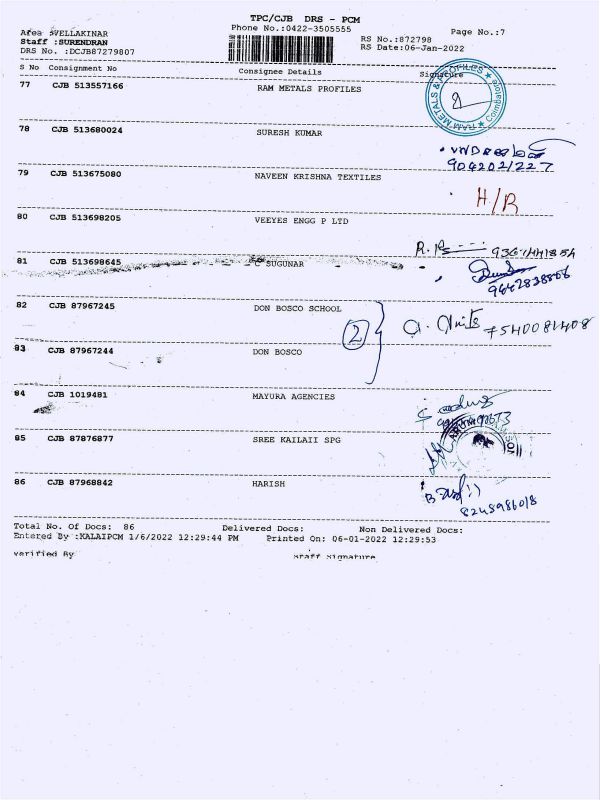 TPC/CJB DRS - PCM
Phone No.:0422-3505555
Page No.:7
Area :VELLAKINAR
Staff :SURENDRAN
DRS No. :DCJB87279807
RS No.:872798
RS Date:06-Jan-2022
S No Consignment No Consignee Details Signature
77 CJB 513557166 RAM METALS PROFILES
RAM METALS & PROFILES ★ Coimbatore ★
78 CJB 513680024 SURESH KUMAR
9042021227
79 CJB 513675080 NAVEEN KRISHNA TEXTILES
H/R
80 CJB 513698205 VEEYES ENGG P LTD
81 CJB 513698645 C SUGUNAR
9642838866
82 CJB 87967245 DON BOSCO SCHOOL
2 7540081408
83 CJB 87967244 DON BOSCO
84 CJB 1019481 MAYURA AGENCIES
85 CJB 87876877 SREE KAILAII SPG
86 CJB 87968842 HARISH
8248986018
Total No. Of Docs: 86 Delivered Docs: Non Delivered Docs:
Entered By :KALAIPCM 1/6/2022 12:29:44 PM Printed On: 06-01-2022 12:29:53
verified By staff signature